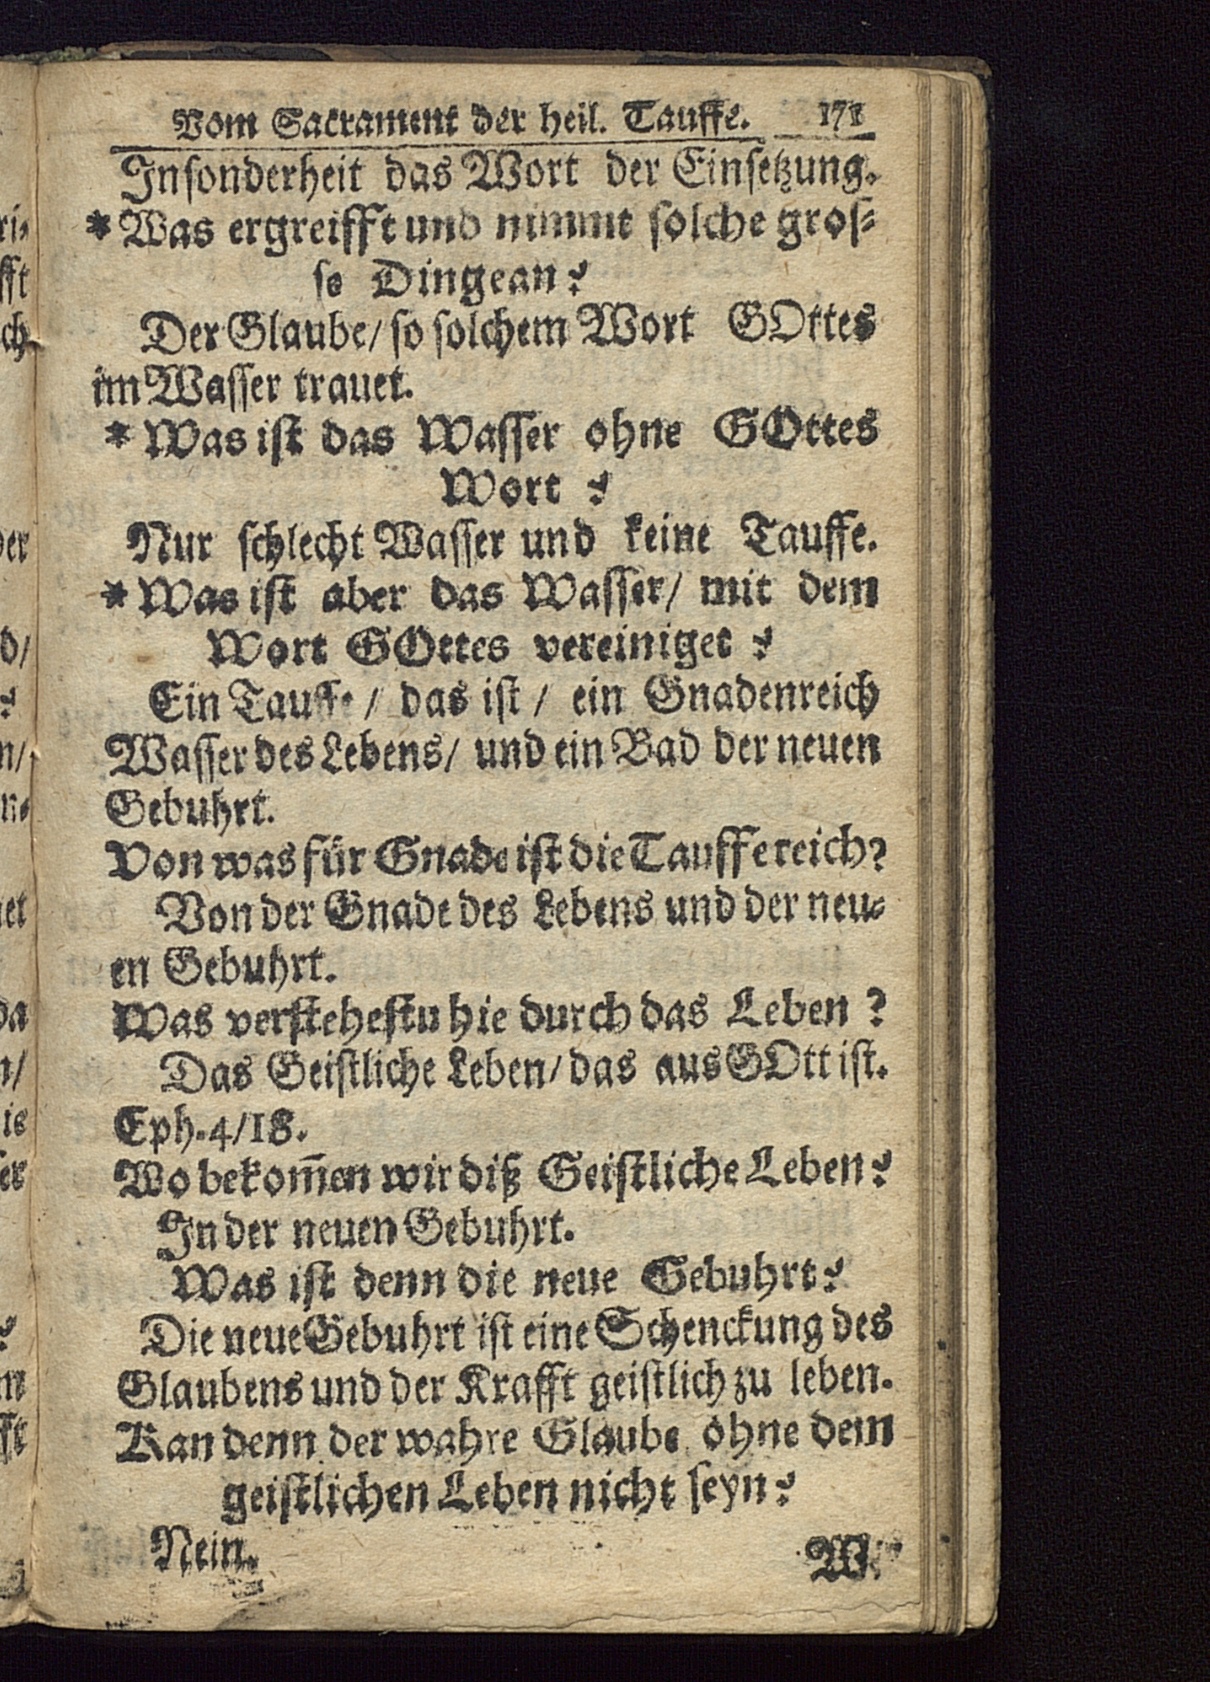 Vom Sacrament der heil. Tauffe. 171
Insonderheit das Wort der Einsetzung.
* Was ergreifft und nimmt solche gros-
se Dinge an?
Der Glaube/ so solchem Wort GOttes
im Wasser trauet.
* Was ist das Wasser ohne GOttes
Wort?
Nur schlecht Wasser und keine Tauffe.
* Was ist aber das Wasser/ mit dem
Wort GOttes vereiniget?
Ein Tauffe/ das ist/ ein Gnadenreich
Wasser des Lebens/ und ein Bad der neuen
Gebuhrt.
Von was für Gnade ist die Tauffe reich?
Von der Gnade des Lebens und der neu-
en Gebuhrt.
Was verstehestu hie durch das Leben?
Das Geistliche Leben/ das aus GOtt ist.
Eph. 4/18.
Wo bekom̃en wir diß Geistliche Leben?
In der neuen Gebuhrt.
Was ist denn die neue Gebuhrt?
Die neue Gebuhrt ist eine Schenckung des
Glaubens und der Krafft geistlich zu leben.
Kan denn der wahre Glaube ohne dem
geistlichen Leben nicht seyn?
Nein.